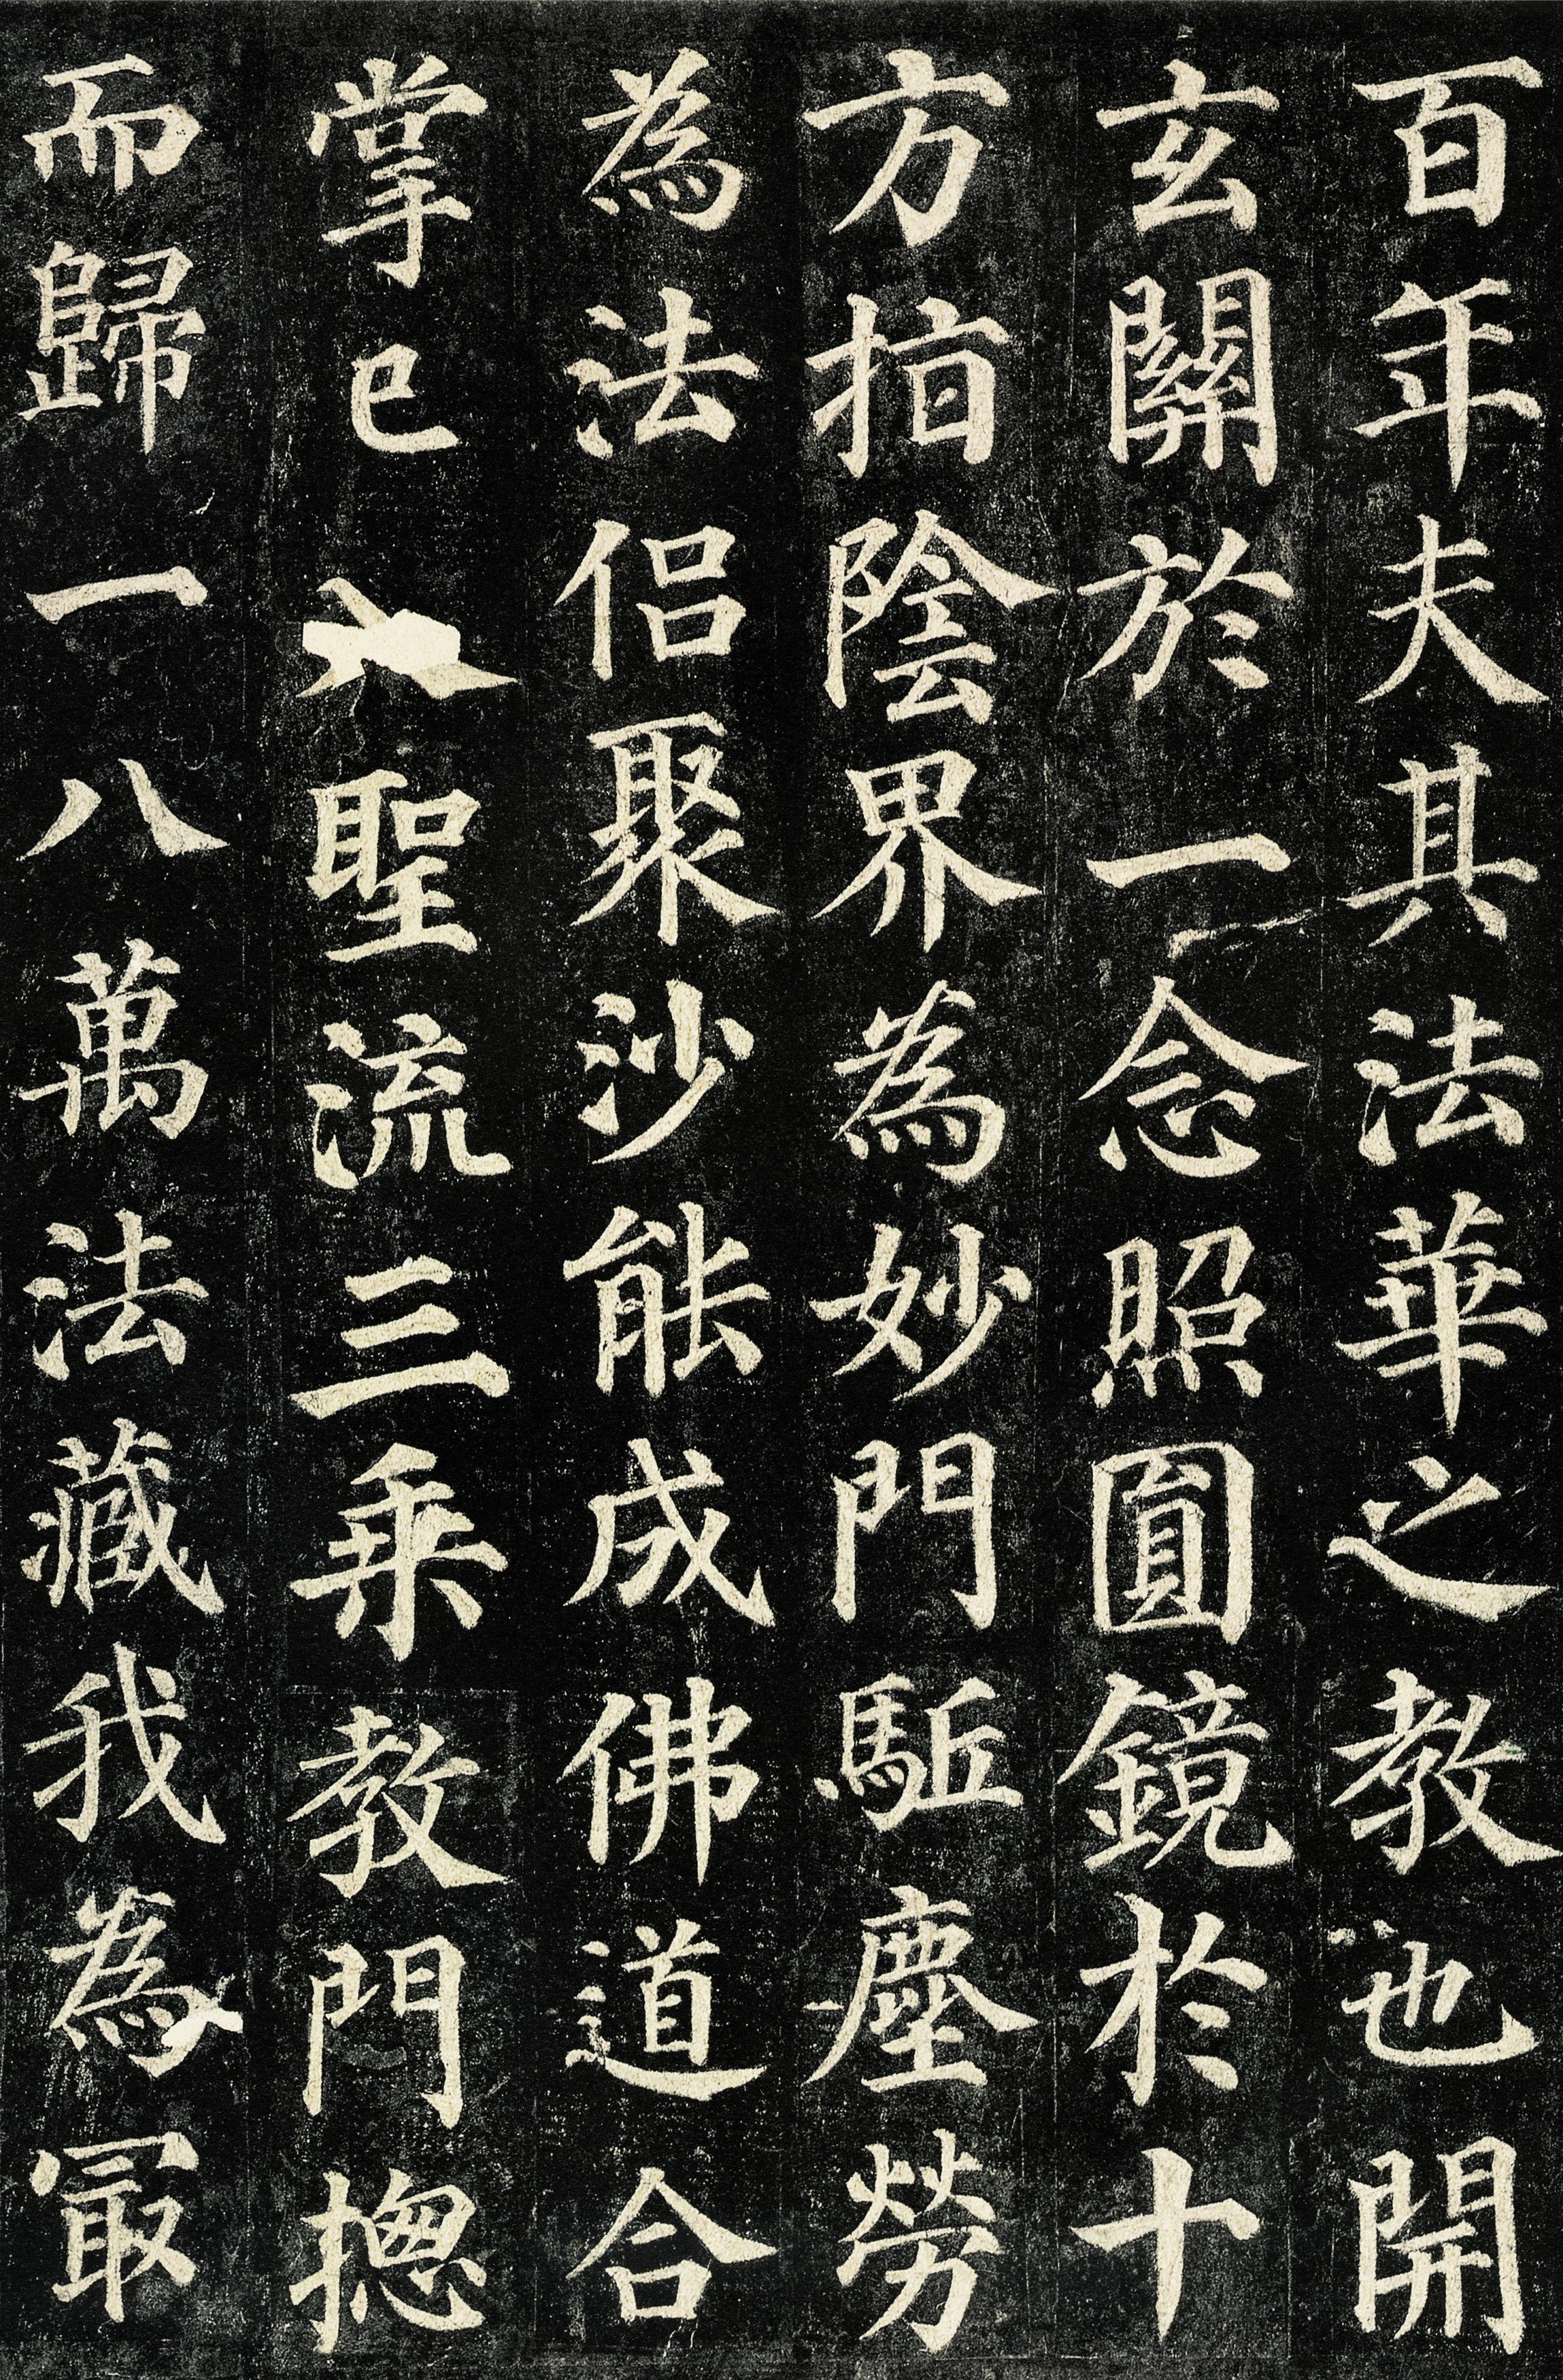 百年夫其法華之教也開
玄關於一念照圓鏡於十
方指陰界為妙門駈塵勞
為法侶聚沙能成佛道合
掌已聖流三乗教門揔
而歸一八萬法藏我為冣